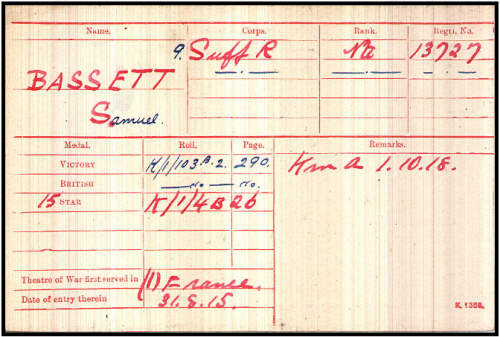 Name. Corps. Rank. Regtl. No.
BASSETT 9. Suff R Pte 13727
Samuel.
Medal. Roll. Page. Remarks.
VICTORY K/1/103.B.2. 290. K in A 1.10.18.
BRITISH —do— do.
15 STAR K/1/4B 26
Theatre of War first served in (1) France.
Date of entry therein 31.8.15.
K. 1380.